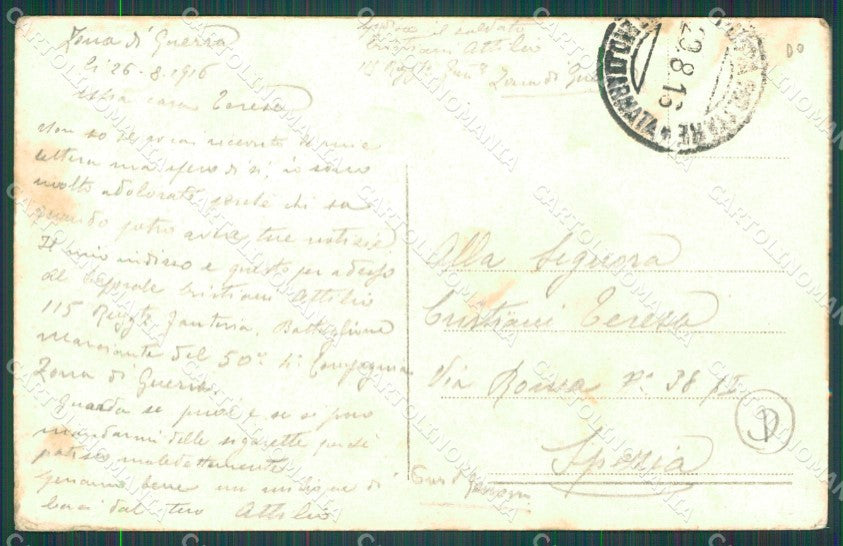 Zona di Guerra
li 26-8-1916
cara Teresa
Non so se avrai ricevuto la mia
lettera ma spero di si, io sono
molto adolorato perchè chi sa
quando potro avere tue notizie
Il mio indirizo e questo per adesso
al Caporale Cristiani Attilio
115 Reggto Fanteria, Battaglione
Marciante del 50° 4a Compagnia
Zona di Guerra
Guarda se puoi e se si puo
mandarmi delle sigarette perchè
patisco maledettamente
un milione di
baci dal tuo Attilio
il soldato
Cristiani Attilio
Zona di Guerra
POSTA MILITARE
ARMATA
29.8.16
Alla Signora
Cristiani Teresa
Via Roma No 38
Spezia
D
CARTOLINOMANIA